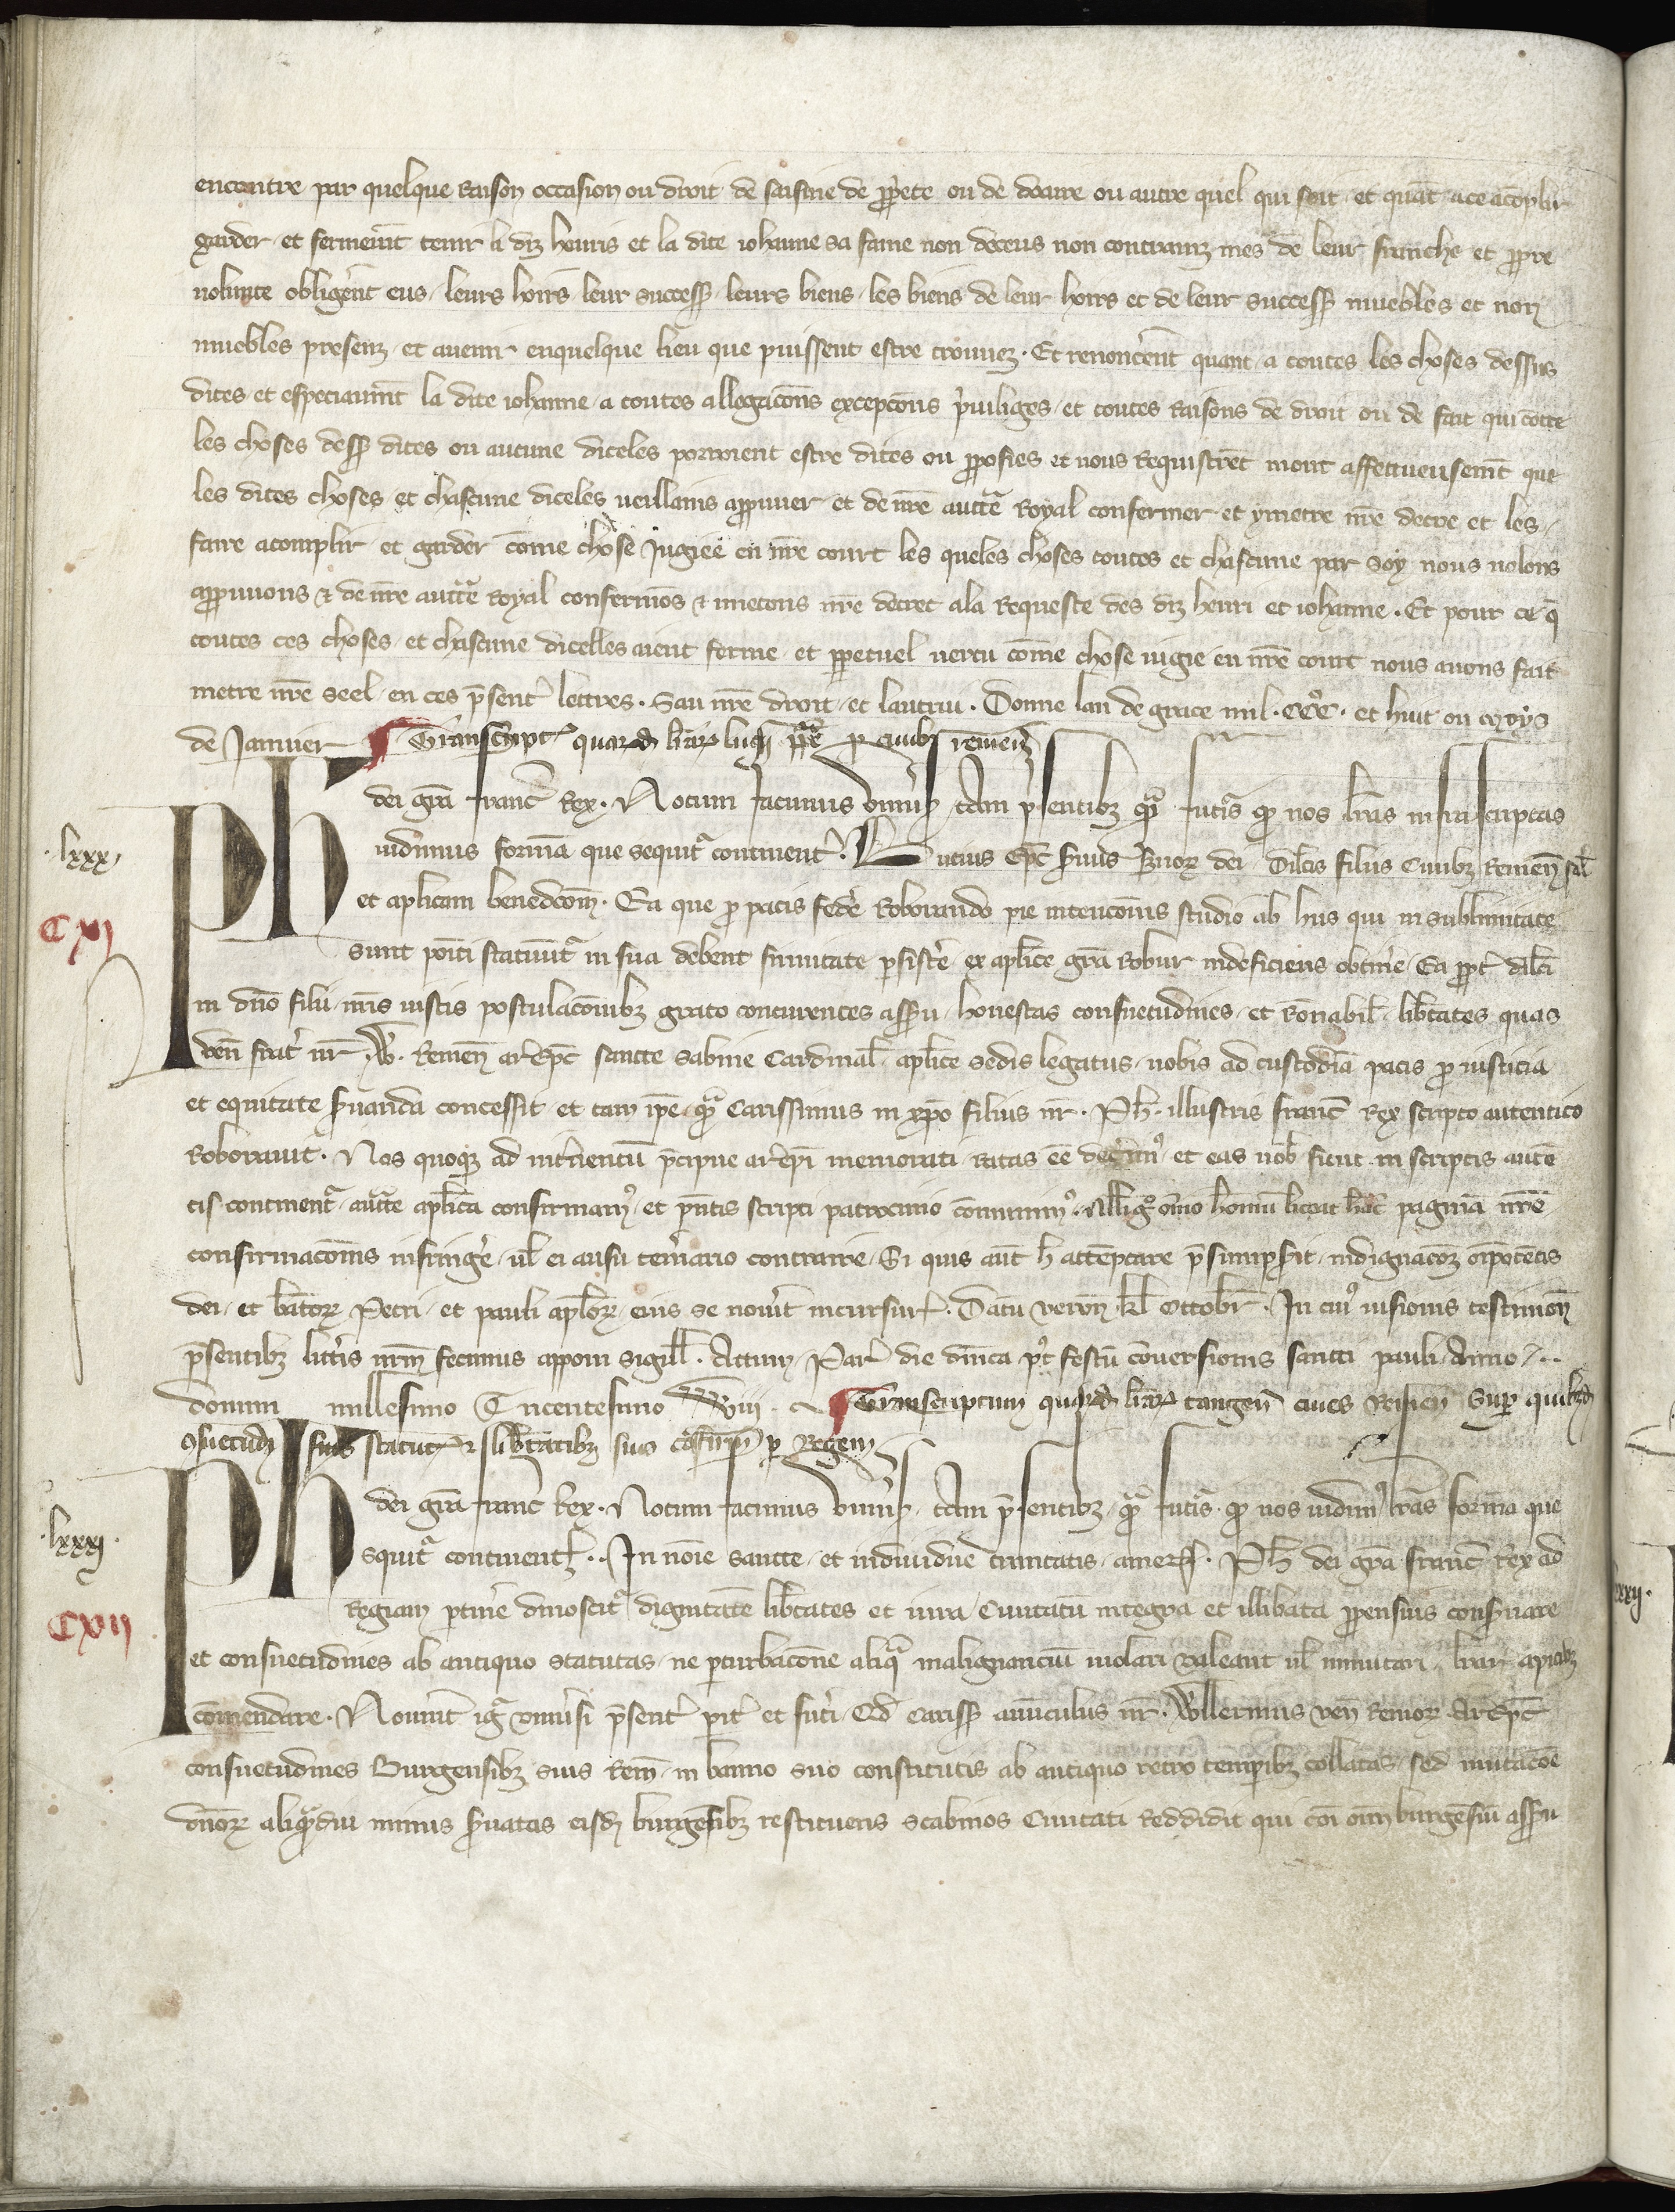 encontre par quelque raison occasion ou droit de saisine de ꝓp̾ete ou de doaire ou autre quel qui soit et quāt a ce acōplir
garder et fermem̄t tenir li diz henris et la dite iohanne sa fame non deceus non contrainz mes de leur franche et ꝓpre
uolunte obligerēt eus leurs hoirs leur success̄ leurs biens les biens de leur hoirs et de leur success̄ muebles et non
muebles presenz et auenir en quelque lieu que puissent estre trouuez. Et renoncerēt quant a toutes les choses dessus
dites et especiaum̄t la dite iohanne a toutes allegacōns excepcōns p̾uiliges et toutes raisons de droit ou de fait qui cōtre
les choses dess̄ dites ou aucune diceles porroient estre dites ou ꝓposees et nous requistrēt mout affectueusem̄t que
les dites choses et chascune diceles ueillains aprouuer et de nr̄e auctᵉ royal confermer et ymetre nr̄e decre et les
faire acomplir et garder cōme chose Jugiee en nr̄e court les queles choses toutes et chascune par soy nous uolons
aprouuons ⁊ de nr̄e auctᵉ royal confermōs ⁊ imetons nr̄e decret a la requeste des diz henri et iohanne. Et pour ce q̄
toutes ces choses et chascune dicelles aient ferme et ꝑpetuel uertu cōme chose iugie en nr̄e court nous auons fait
metre nr̄e seel en ces p̄sent̾ lettres. Sau nr̄e droit et lautrui. Donne lan de grace mil. CCC. et huit ou moys
de Januier Transcript̾ quarūd lr̄aꝝ lucii pp̄e ꝓ ciuibꝫ remen̄
.lxxx.
CXI
Ph dei gr̄a franc̄ Rex. Notum facimus vniu̾s̄ tam p̄sentibꝫ qᵃm futᵃis qꝫ nos lr̄as infrascriptas
uidimus formā que sequitᵉ continent̾. Lucius ep̄c seruus seruoꝝ dei Dil̄cis filiis Ciuibꝫ remen̄ sal̄
et apl̄icam benedc̄om̄. Ea que ꝓ pacis federe roborando pie intencōnis studio ab hiis qui in sublimitate
sunt poīti statuūtᵉ in sua debent firmitate ꝑsiste̾ ex apl̄ice gr̄a robur indeficiens obtin̾e Ea ꝓpt̾ dil̄ci
in dn̄o filii nr̄is iustis postulacōnibꝫ grato concurrentes assensu honestas consuetudines et rōnabil̄ lib̾tates quas
ven̄ frat̾ nr̄ .W. Remen̄ arep̄c sancte sabine Cardinal̄ apl̄ice sedis legatus nobis ad custodiā pacis ꝓ iusticia
et equitate seruanda concessit et tam ip̄e qᵃm Carissimus in xp̄o filius nr̄. Ph̄. illustris franc̄ rex scripto autentico
roborauit. Nos quoqꝫ ad int̾uentū p̄cipue arep̄i memorati ratas ēe decernim⁹ et eas uob̄ sicut in scriptis auten̄
tis continentᵉ auctᵉ apl̄ica confirmam⁹ et p̄ntis scripti patrocinio cōmunim⁹. Nulli g̊ om̄io hominū liceat hāc paginā nr̄e
confirmacōnis infring̾e ul̄ ei ausu tem̾ario contraire Si quis aūt h attēptare p̄sumps̾it indignacōꝫ oīpotētis
dei et bēatoꝝ Petri et pauli apl̄oꝝ eius se nou̾it incursuꝝ. Datū veron̄ kl̄ ottobr̄. In cui⁹ uisionis testimoīu
p̄sentibꝫ litt̾is nr̄m fecimus apponi sigill̄. Actum Par̄ die dn̄ica p⁹t festū conuersionis sancti pauli Anno
domini millesimo Tricentesimo viii Transcriptum quarūd lr̄aꝝ tangen̄ ciues Remen̄ super quibꝫd
ꝯsuetud̄ suis statut̾ ⁊ lib̾tatibꝫ suis cōfirm̄ ꝑ Regem
.lxxxi.
CXII
Ph dei gr̄a franc̄ Rex. Notum facimus vniu̾s̄ tam p̄sentibꝫ qᵃm futᵃis qꝫ nos uidim⁹ lr̄as formā que
sequitᵉ continent̾. In noīe sancte et indiuidue trinitatis amen. Ph̄ dei gr̄a franc̄ rex ad
Regiam ꝑtin̾e dinoscitᵉ dignitatē lib̾tates et iura Ciuitatū integra et illibata ꝓpensius conseruare
et consuetudines ab antiquo statutas ne ꝑturbacōne aliqᵃ malignanciū uiolari valeant ul̄ inmutari lr̄aꝝ apicibꝫ
cōmendare. Nouerint igᵉ vniu̾si p̄sent̾ pit̾ et fut̾i Qd̄ Cariss̄ auūculus nr̄ .Willermus ven̄ remoꝝ Arep̄c
consuetudines Burgensibꝫ suis Rem̄ in banno suo constitutis ab antiquo retro tempibꝫ collatas sed mutacōe
dn̄oꝝ aliqᵃdiu minus seruatas eisdē burgēsibꝫ restituens scabinos Ciuitati reddidit qui cōi om̄ burgēsiū assēsu